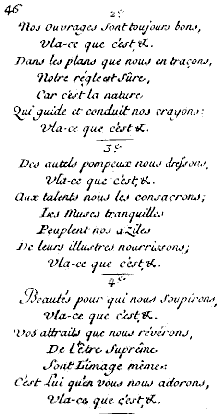 46
2e
Nos Ouvrages Sont toujours bons,
Vla-ce que c'est, &.
Dans les plans que nous en traçons,
Notre régle est Sûre,
Car c'est la nature
Qui guide et conduit nos crayons:
Vla-ce que c'est &.
3e
Des autels pompeux nous dressons,
Vla-ce que c'est, &.
Aux talents nous les consacrons;
Les Muses tranquilles
Peuplent nos aziles
De leurs illustres nourrissons;
Vla-ce que c'est, &.
4e
Beautés pour qui nous Soupirons,
Vla-ce que c'est, &.
Vos attraits que nous révérons,
De l'Etre Suprême
Sont L'image même:
C'est Lui qu'en vous nous adorons,
Vla-ce que c'est, &.